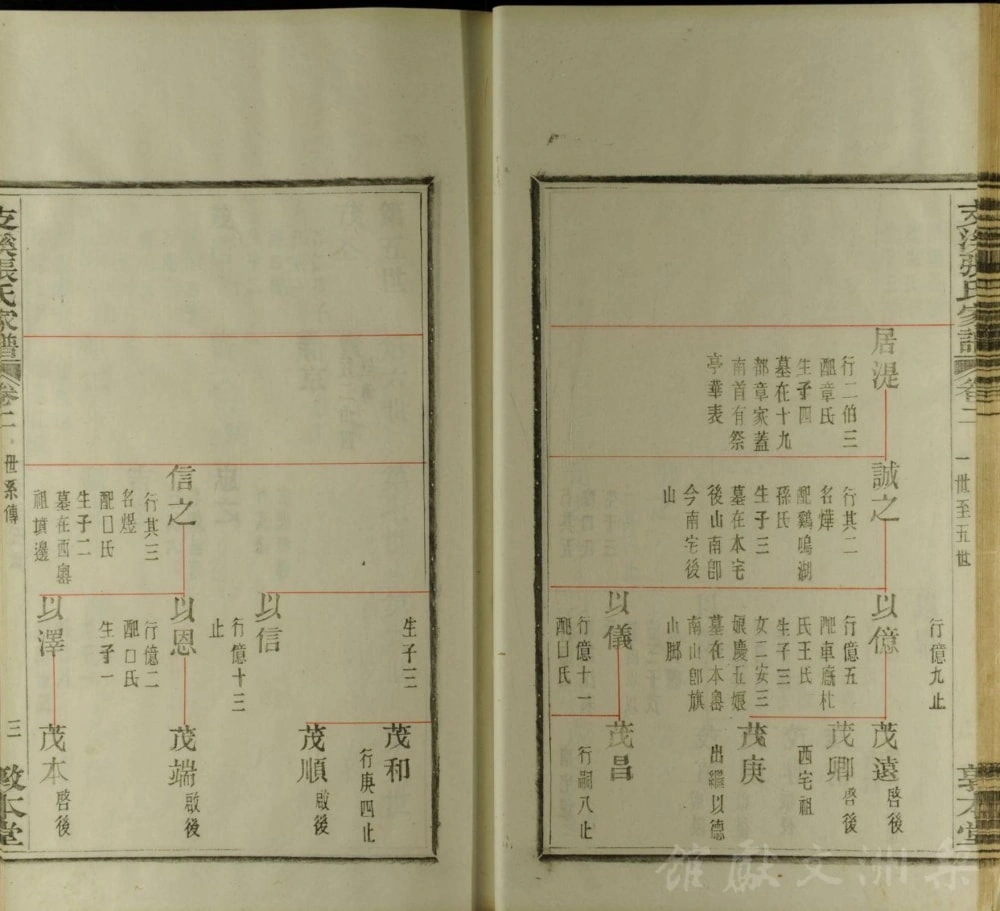 支溪張氏家譜
卷二
一世至五世
敦本堂
居湜
行二伯三
配章氏
生子四
墓在十九
都章家蓋
南首有祭
亭華表
誠之
行其二
名燁
配鷄鳴湖
孫氏
生子三
墓在本宅
後山南卽
今南宅後
山
行億九止
以億
行億五
配車廐杜
氏王氏
生子三
女二安三
娘慶五娘
墓在本嶴
南山卽旗
山脚
以儀
行億十一
配口氏
茂遠
啓後
茂卿
啓後
西宅祖
茂庚
出繼以德
茂昌
行嗣八止
生子二
茂和
行庚四止
茂順
啟後
以信
行億十三
止
信之
行其三
名煜
配口氏
生子二
墓在西嶴
祖墳邊
以恩
行億二
配口氏
生子一
茂端
啟後
以澤
茂本
啓後
支溪張氏家譜
卷二
世系傳
三
敦本堂
梨洲文獻館